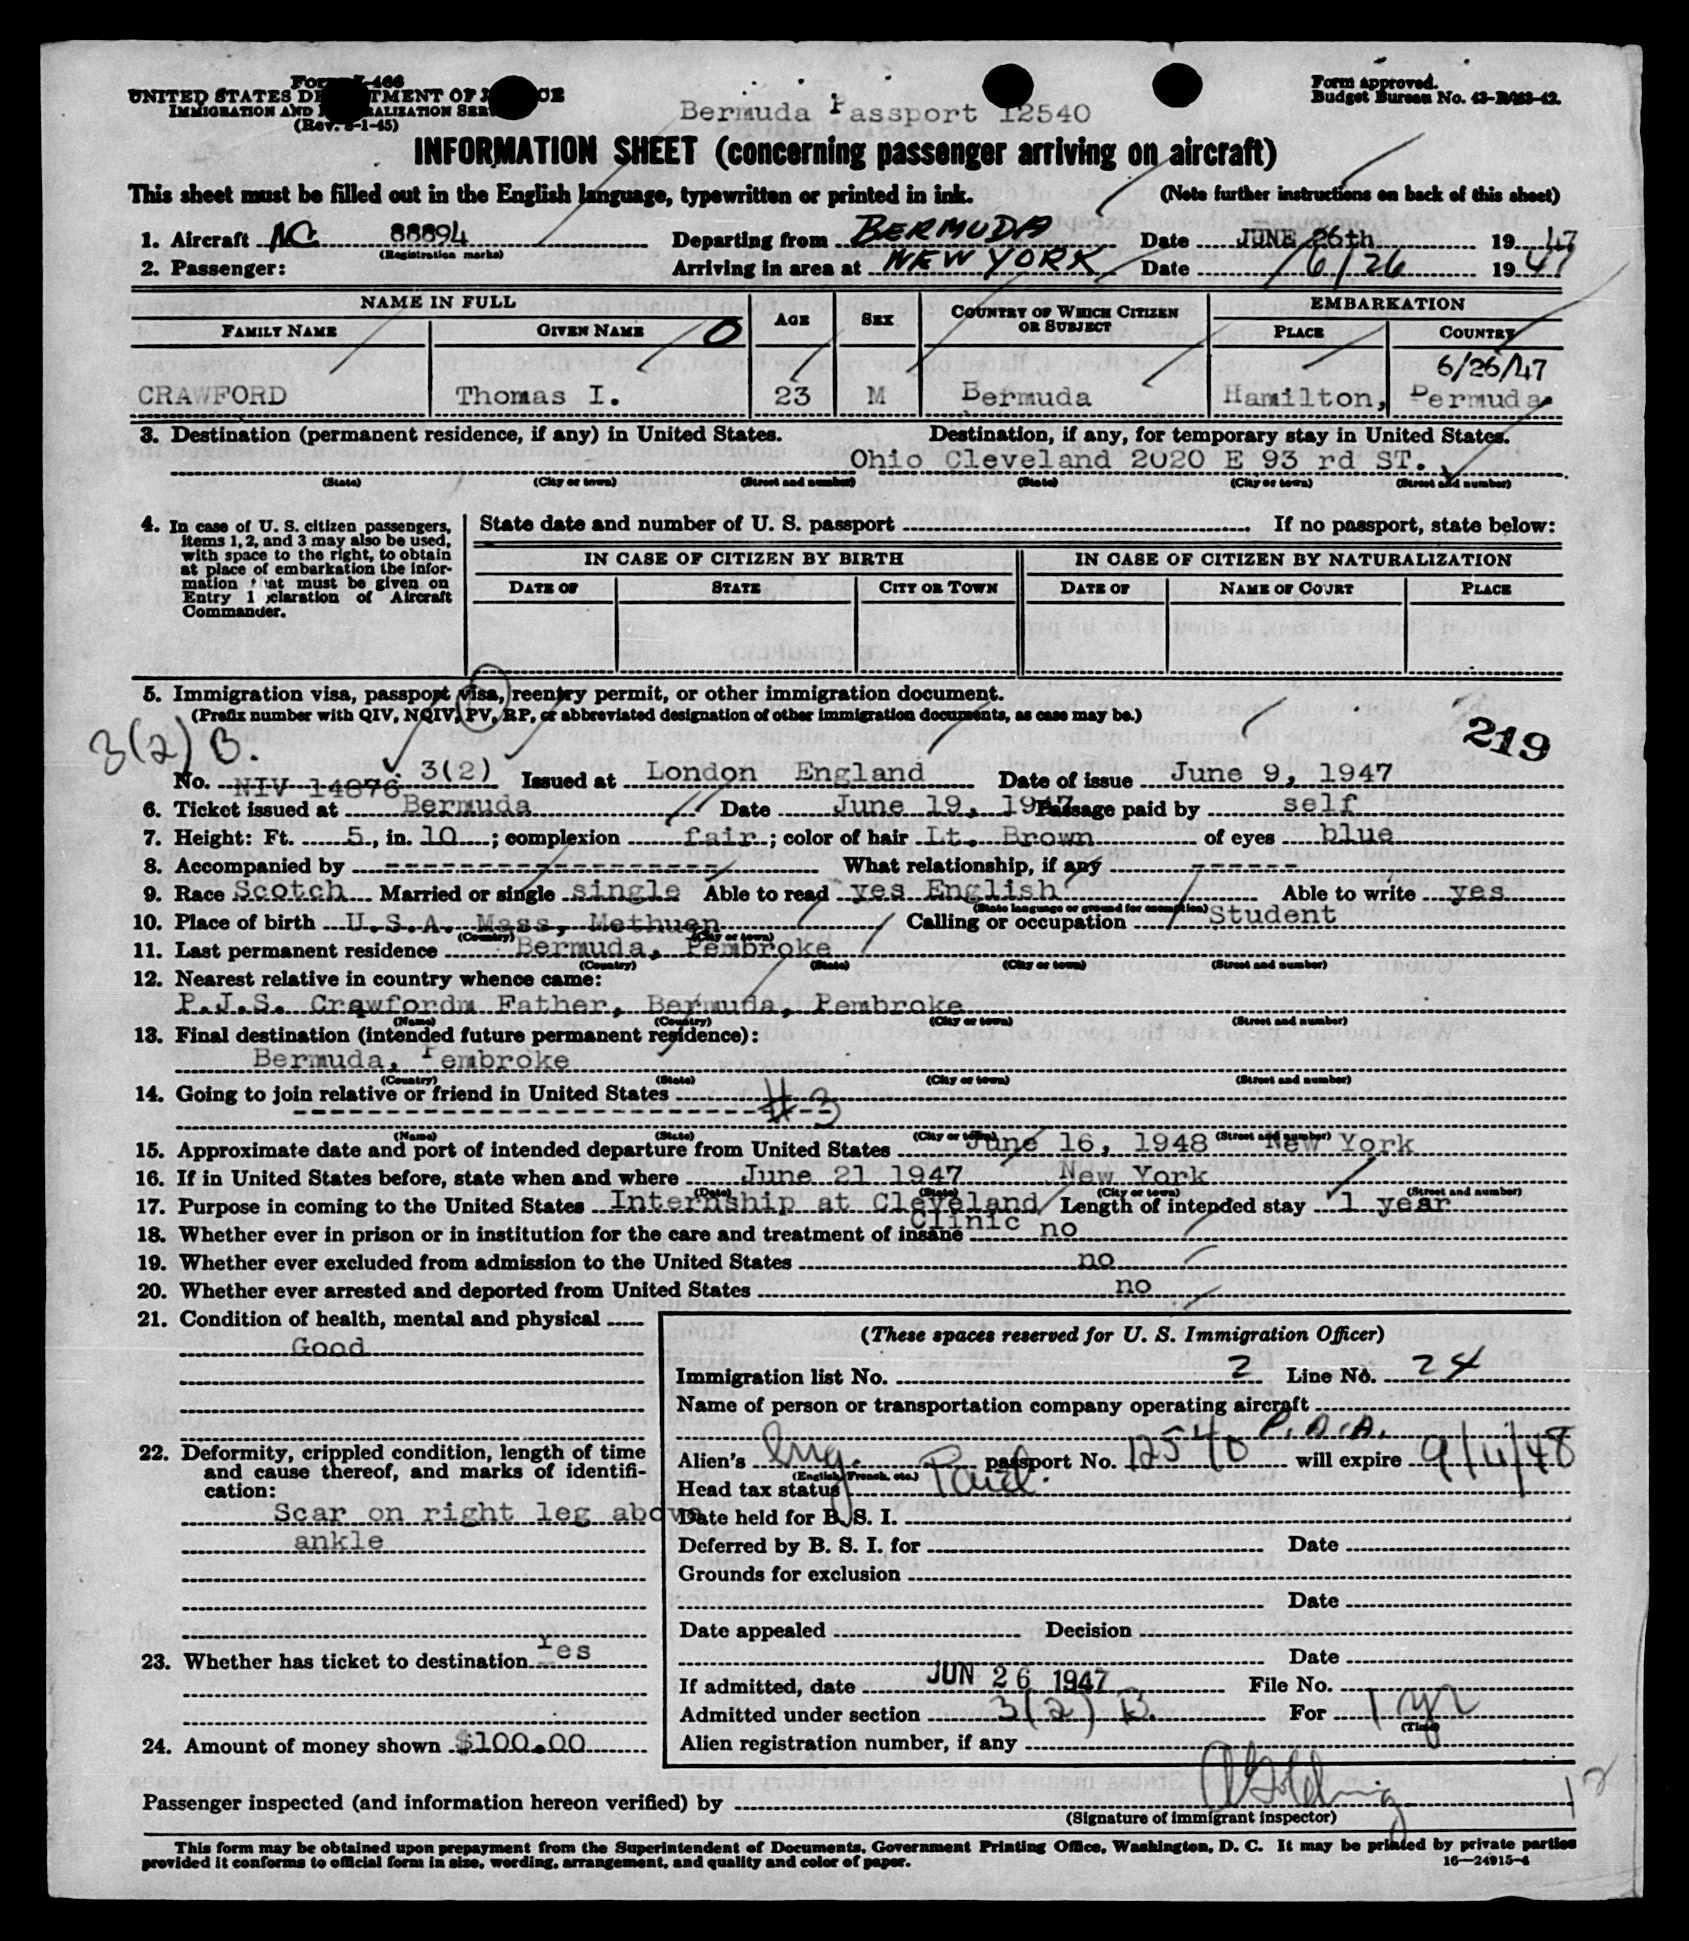 Form I-466
UNITED STATES DEPARTMENT OF JUSTICE
IMMIGRATION AND NATURALIZATION SERVICE
(Rev. 5-1-45)
Form approved.
Budget Bureau No.
Bermuda Passport 12540
INFORMATION SHEET (concerning passenger arriving on aircraft)
This sheet must be filled out in the English language, typewritten or printed in ink. (Note further instructions on back of this sheet)
1. Aircraft NC 88894 Departing from BERMUDA Date JUNE 26th 1947
(Registration marks)
2. Passenger: Arriving in area at NEW YORK Date 6/26 1947
NAME IN FULL AGE SEX COUNTRY OF WHICH CITIZEN OR SUBJECT EMBARKATION
FAMILY NAME GIVEN NAME O PLACE COUNTRY
6/26/47
CRAWFORD Thomas I. 23 M Bermuda Hamilton, Bermuda
3. Destination (permanent residence, if any) in United States. Destination, if any, for temporary stay in United States.
Ohio Cleveland 2020 E 93 rd ST.
(State) (City or town) (Street and number) (State) (City or town) (Street and number)
4. In case of U. S. citizen passengers, items 1, 2, and 3 may also be used, with space to the right, to obtain at place of embarkation the information that must be given on Entry Declaration of Aircraft Commander.
State date and number of U. S. passport If no passport, state below:
IN CASE OF CITIZEN BY BIRTH IN CASE OF CITIZEN BY NATURALIZATION
DATE OF STATE CITY OR TOWN DATE OF NAME OF COURT PLACE
5. Immigration visa, passport visa, reentry permit, or other immigration document.
(Prefix number with QIV, NQIV, PV, RP, or abbreviated designation of other immigration documents, as case may be.)
219
3(2) B.
No. NIV 14876 3(2) Issued at London England Date of issue June 9, 1947
6. Ticket issued at Bermuda Date June 19, 1947 Passage paid by self
7. Height: Ft. 5, in. 10; complexion fair; color of hair Lt. Brown of eyes blue
8. Accompanied by ---------------- What relationship, if any -----
9. Race Scotch Married or single single Able to read yes English Able to write yes
(State language or ground for exemption)
10. Place of birth U.S.A. Mass, Methuen Calling or occupation Student
(Country) (City or town)
11. Last permanent residence Bermuda, Pembroke
(Country) (State) (City or town) (Street and number)
12. Nearest relative in country whence came:
P.J.S. Crawfordm Father, Bermuda, Pembroke
(Name) (Country) (City or town) (Street and number)
13. Final destination (intended future permanent residence):
Bermuda, Pembroke
(Country) (State) (City or town) (Street and number)
14. Going to join relative or friend in United States
#3
(Name) (State) (City or town) (Street and number)
15. Approximate date and port of intended departure from United States June 16, 1948 New York
16. If in United States before, state when and where June 21 1947 New York
(Date) (State) (City or town) (Street and number)
17. Purpose in coming to the United States Internship at Cleveland Length of intended stay 1 year
Clinic
18. Whether ever in prison or in institution for the care and treatment of insane no
19. Whether ever excluded from admission to the United States no
20. Whether ever arrested and deported from United States no
21. Condition of health, mental and physical
Good
22. Deformity, crippled condition, length of time and cause thereof, and marks of identification:
Scar on right leg above
ankle
23. Whether has ticket to destination Yes
24. Amount of money shown $100.00
(These spaces reserved for U. S. Immigration Officer)
Immigration list No. 2 Line No. 24
Name of person or transportation company operating aircraft
P.A.A.
Alien's Eng. passport No. 12540 will expire 9/11/48
(English, French, etc.)
Head tax status Paid.
Date held for B. S. I.
Deferred by B. S. I. for Date
Grounds for exclusion
Date
Date appealed Decision
Date
If admitted, date JUN 26 1947 File No.
Admitted under section 3(2) B. For 1 yr
(Time)
Alien registration number, if any
Passenger inspected (and information hereon verified) by
(Signature of immigrant inspector)
This form may be obtained upon prepayment from the Superintendent of Documents, Government Printing Office, Washington, D. C. It may be printed by private parties
provided it conforms to official form in size, wording, arrangement, and quality and color of paper.
16—24915-4